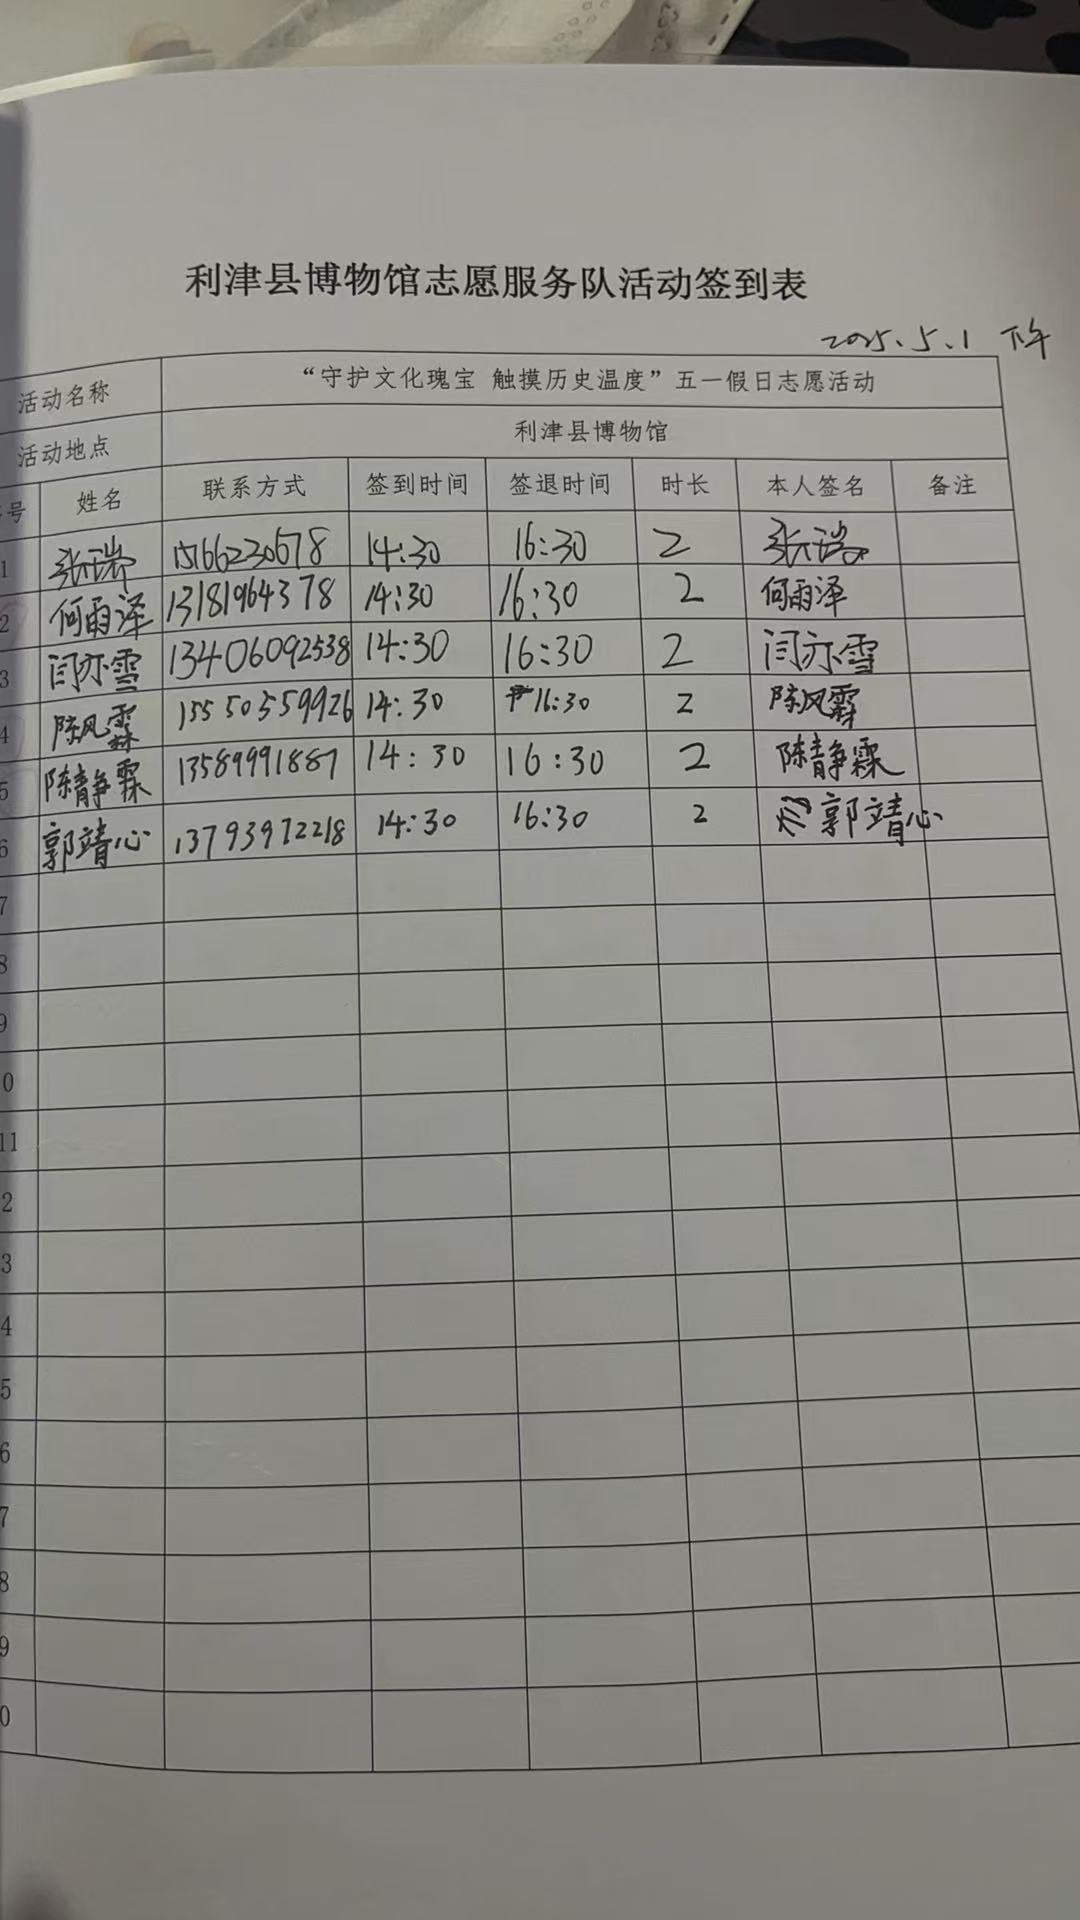 利津县博物馆志愿服务队活动签到表
2025.5.1 下午
活动名称 “守护文化瑰宝 触摸历史温度”五一假日志愿活动
活动地点 利津县博物馆
号 姓名 联系方式 签到时间 签退时间 时长 本人签名 备注
1 张瑞 15166230678 14:30 16:30 2 张瑞
2 何雨泽 13181964378 14:30 16:30 2 何雨泽
3 闫亦雪 13406092538 14:30 16:30 2 闫亦雪
4 陈风霖 15550559926 14:30 16:30 2 陈风霖
5 陈静霖 13589991887 14:30 16:30 2 陈静霖
6 郭靖心 13793972218 14:30 16:30 2 郭靖心
7
8
9
0
11
2
3
4
5
6
7
8
9
0